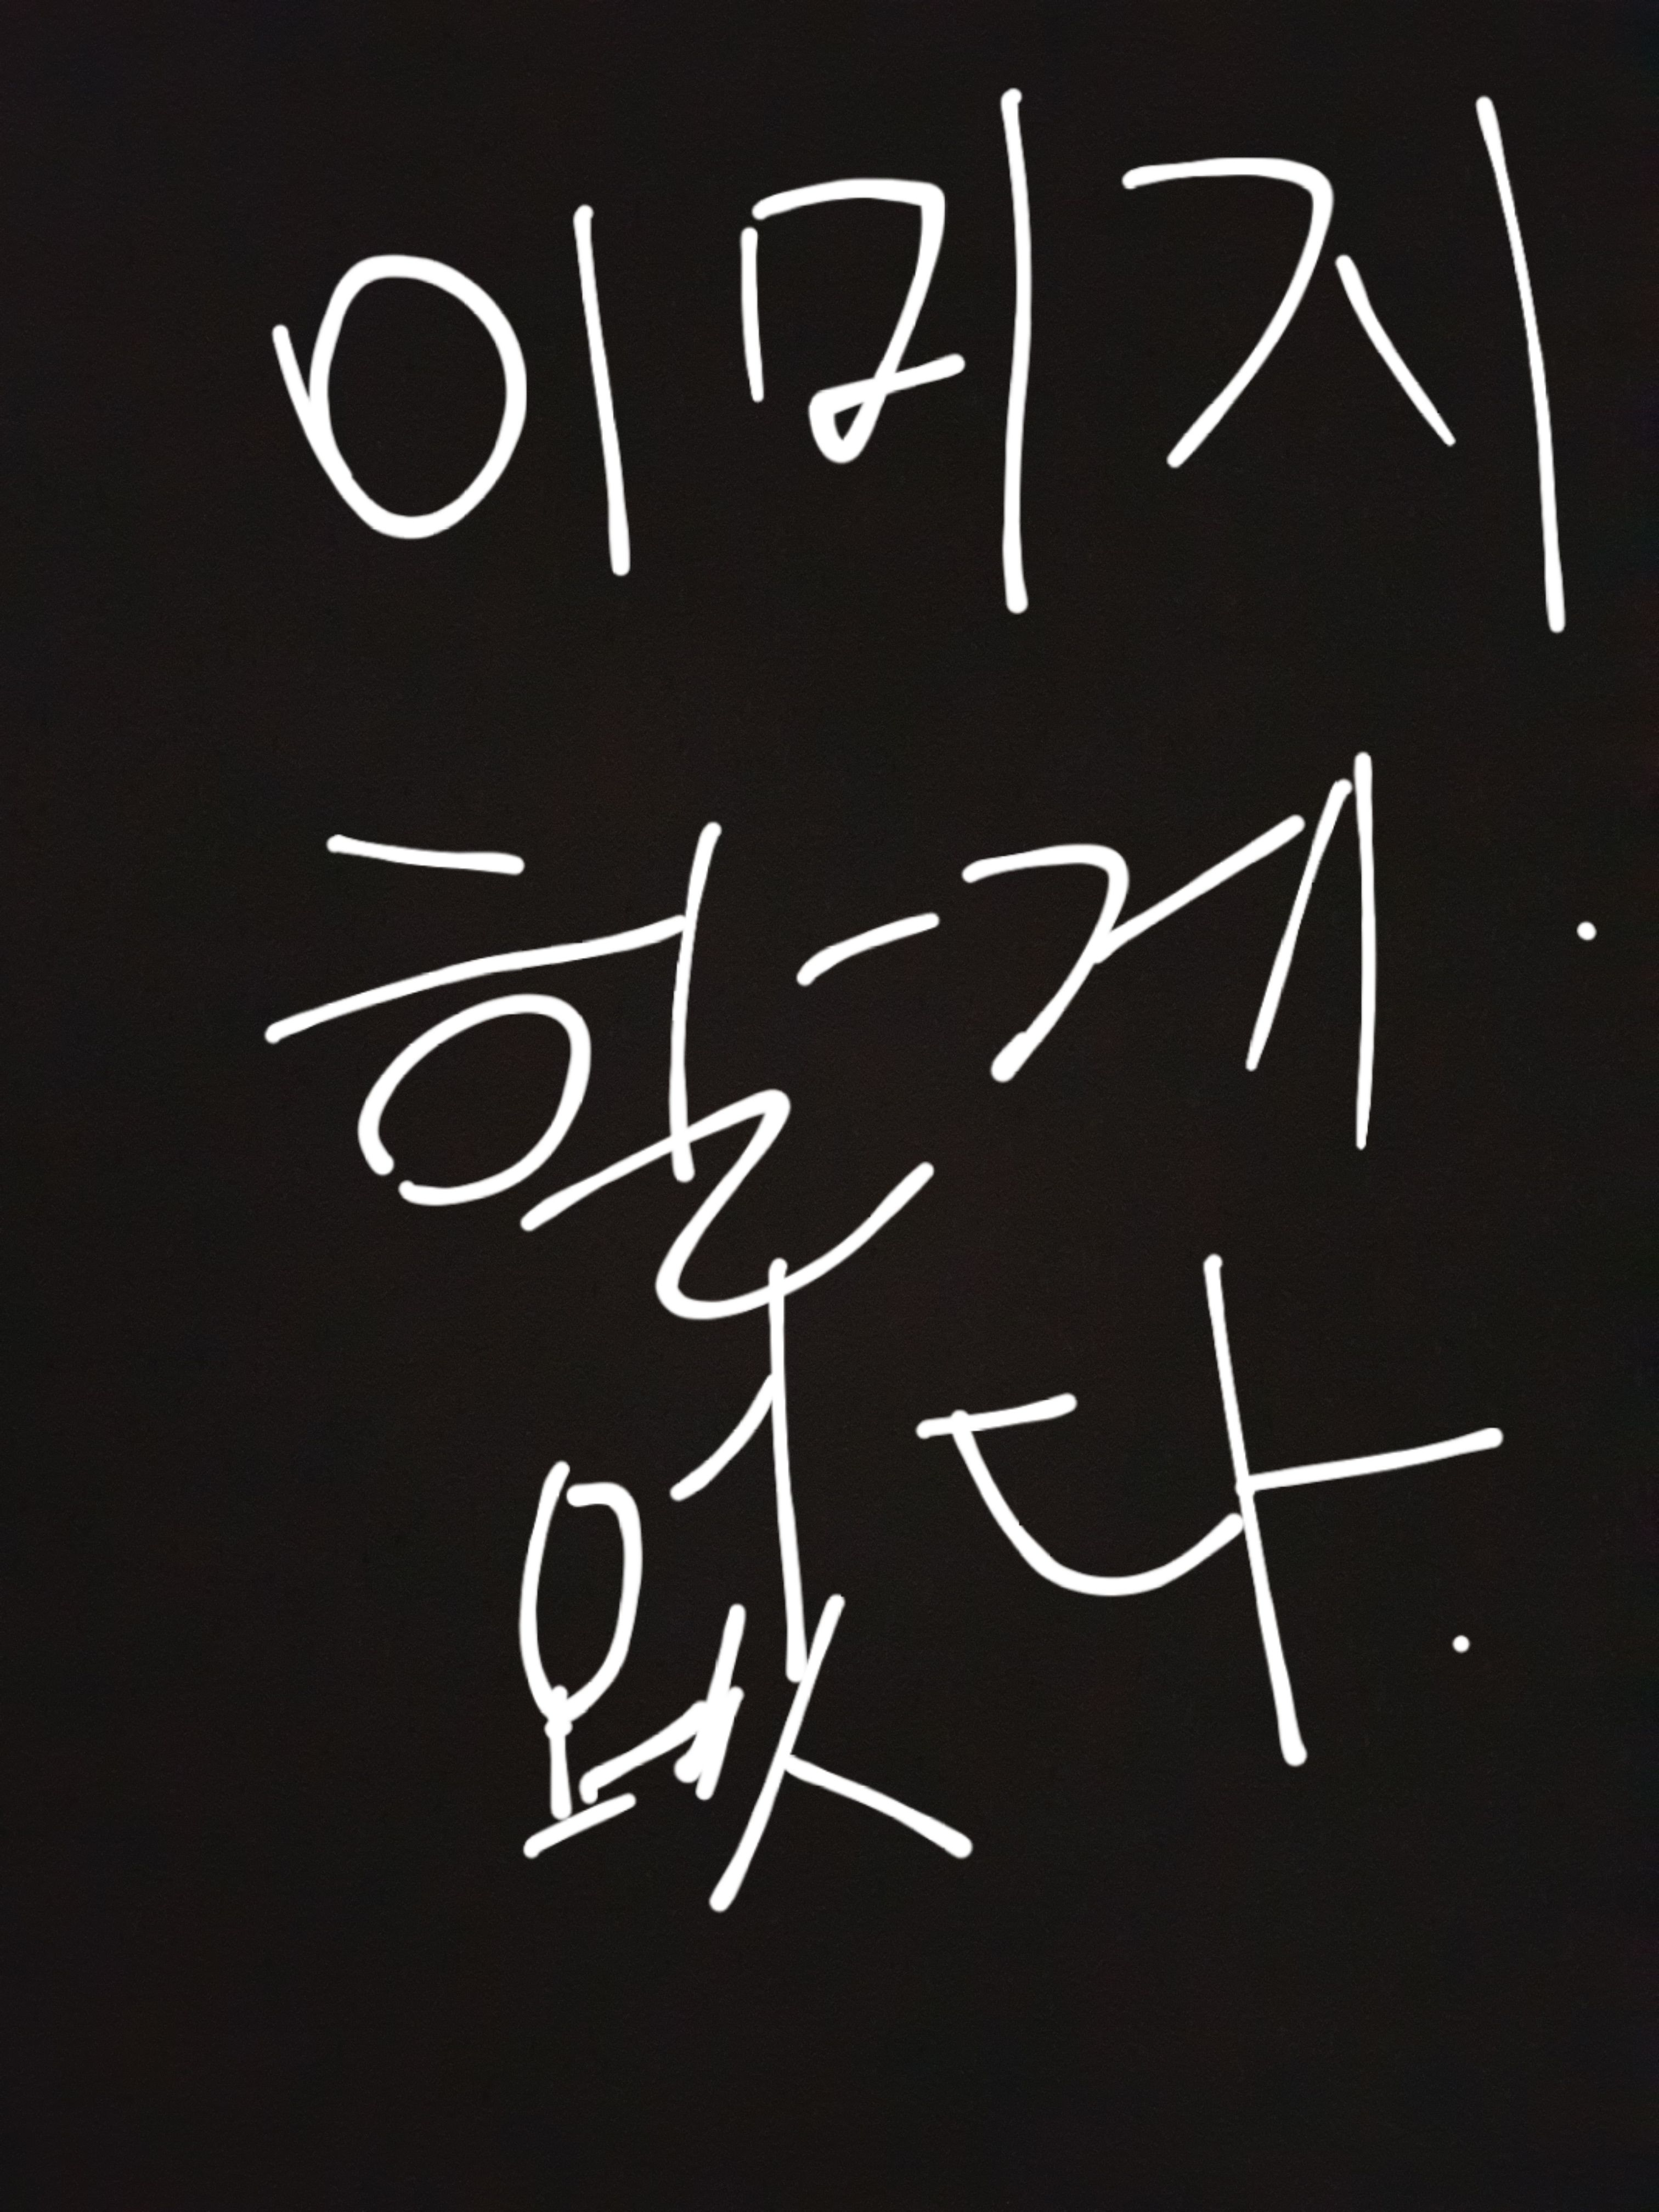 이미지
할게.
없다.